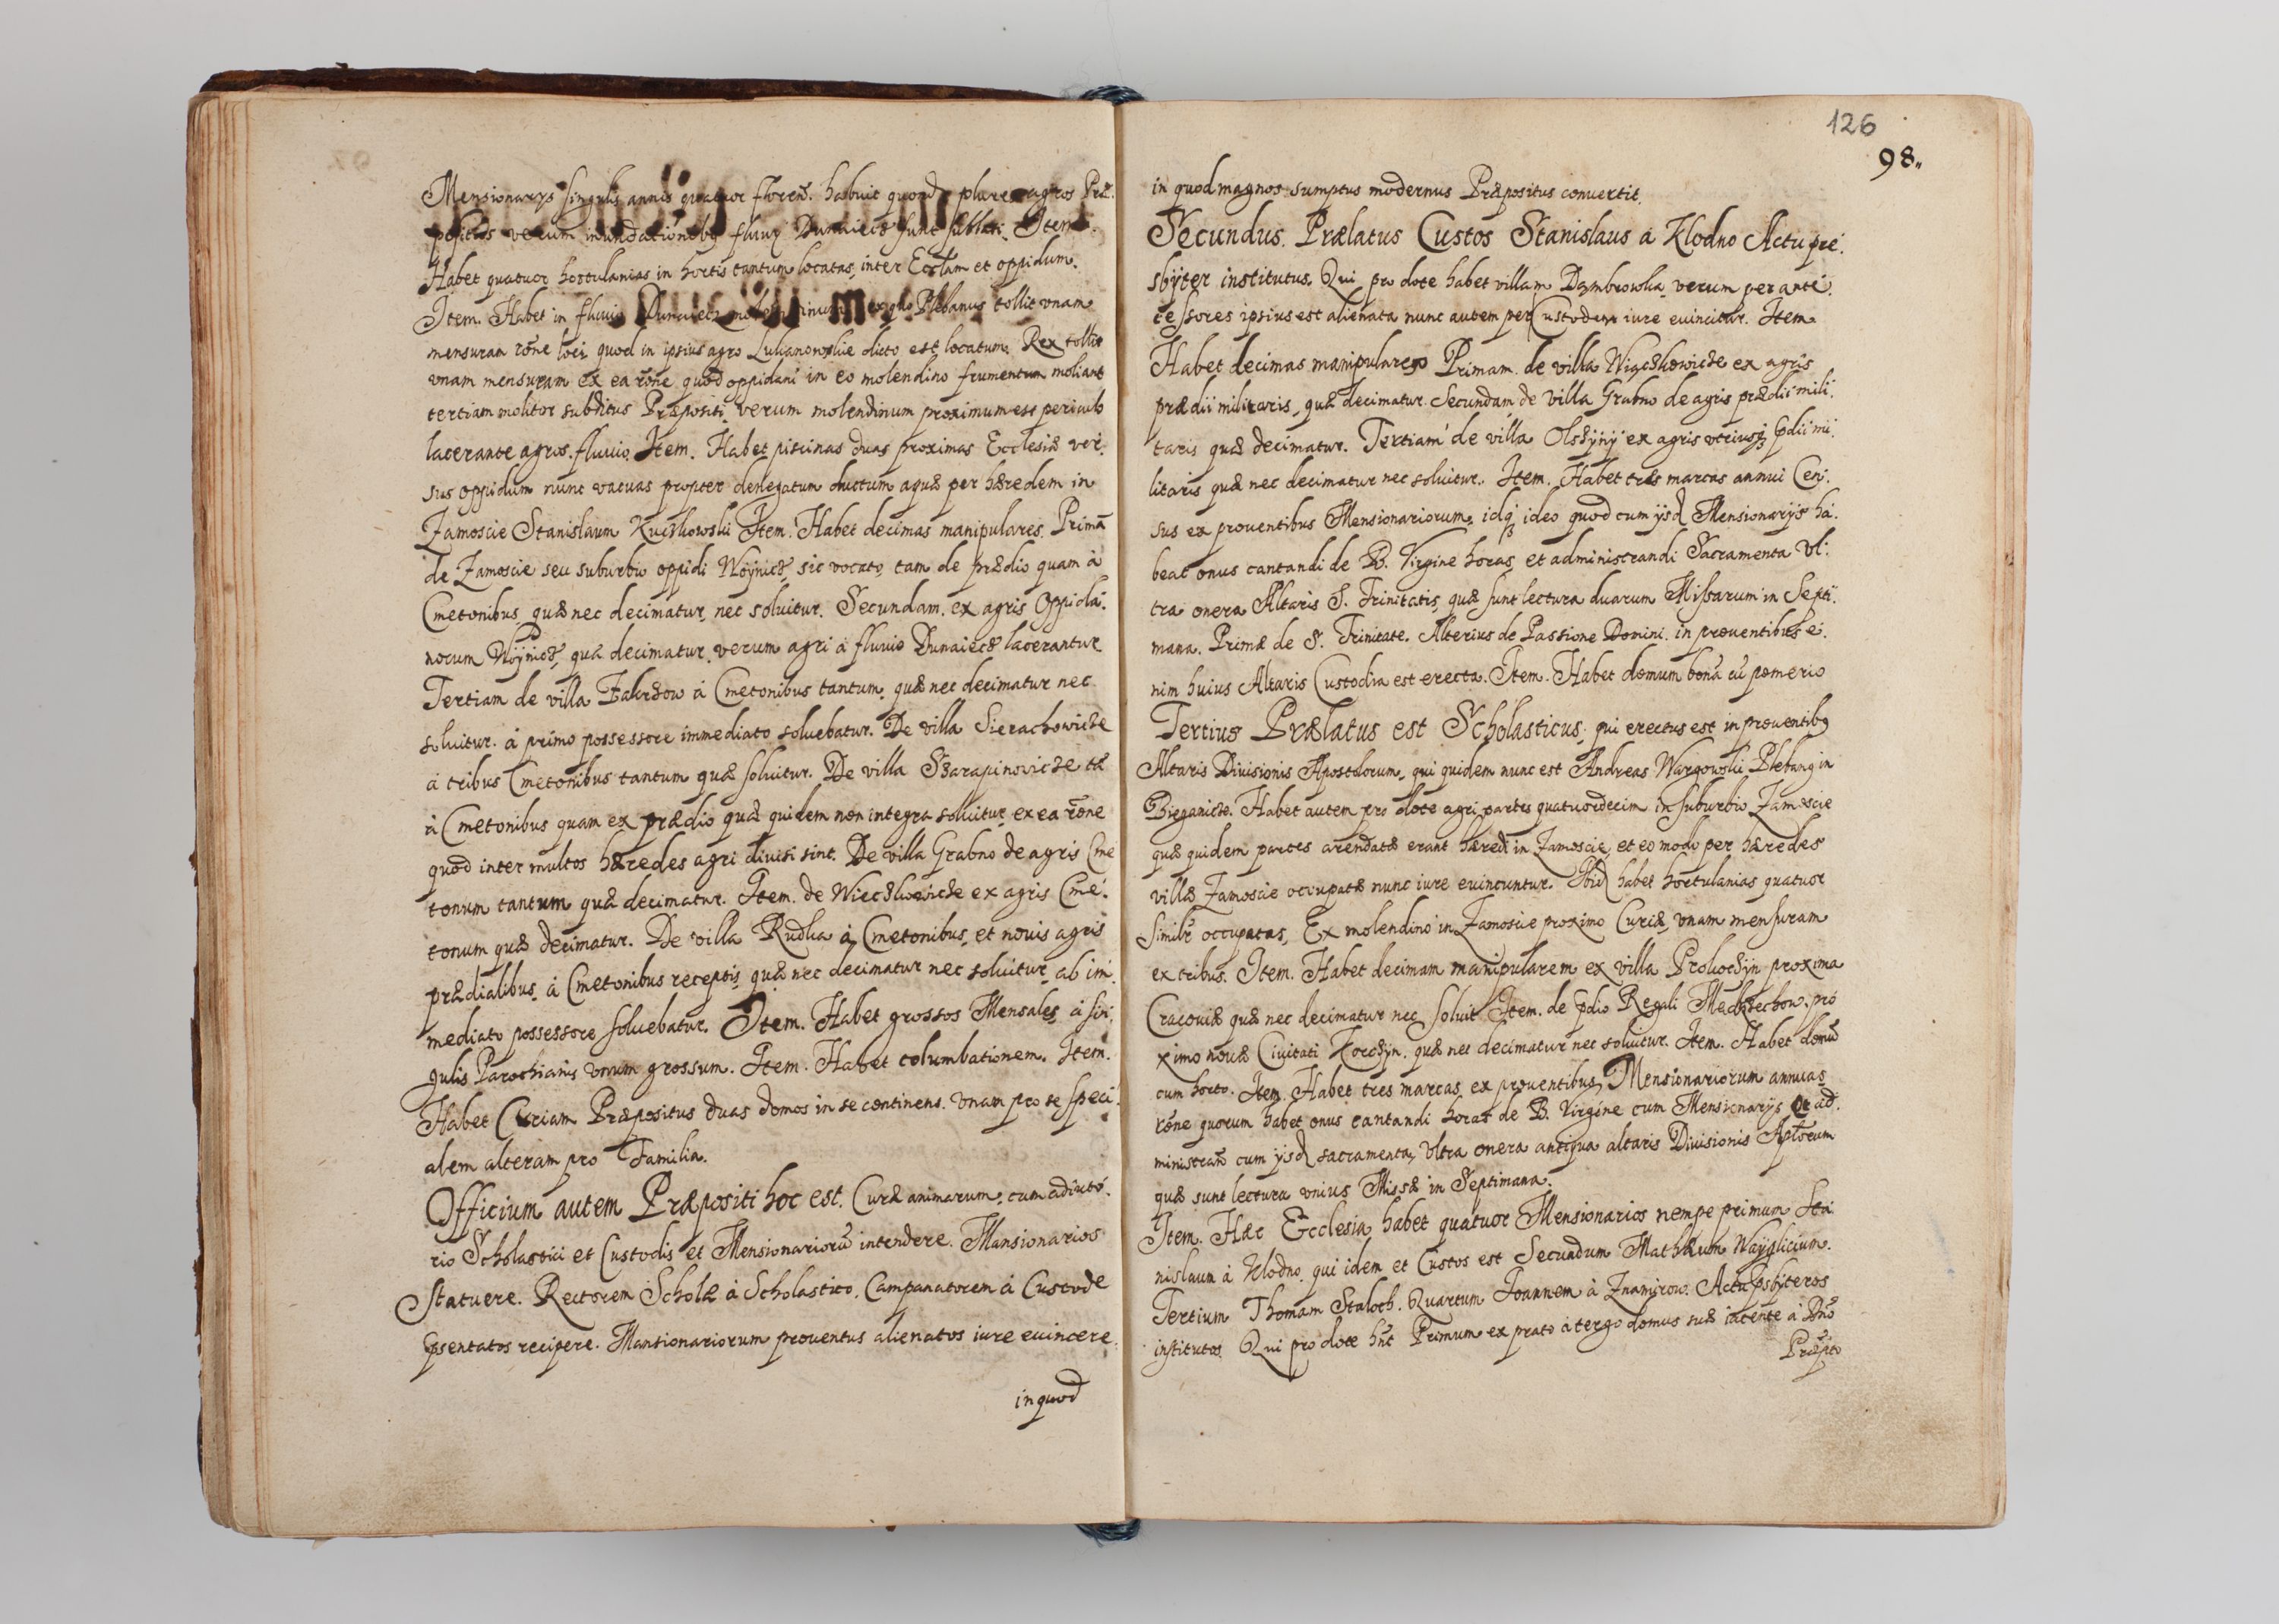 Mensionarys singulis annis quatuor floren. habuit quond plures agros Præ-
positus verum inundationibq fluuij Dunaiecz sunt sublati. Item.
Habet quatuor hortulanias in hortis tantum locatas, inter Ecclam et oppidum.
Item. Habet in fluuio Dunaiecz ex quo Plebanus tollit vnam
mensuram rõne loci quod in ipsius agro Lukianowskie dicto est locatum. Rex tollit
vnam mensuram ex ea rõne quod oppidani in eo molendino frumentum moliant
tertiam molitor subditus Præpositi verum molendinum proximum est periculo
lacerante agros fluuio. Item. Habet piscinas duas proximas Ecclesiæ ver-
sus oppidum nunc vacuas propter denegatum ductum aquæ per hæredem in
Zamoscie Stanislaum Kuczkowski Item. Habet decimas manipulares. Primã
de Zamoscie seu suburbio oppidi Woÿnicz, sic vocato, tam de prædio quam à
Cmetonibus quæ nec decimatur, nec soluitur. Secundam. ex agris Oppida-
norum Woÿnicz, quæ decimatur, verum agri à fluuio Dunaiecz lacerantur
Tertiam de villa Zakrzow à Cmetonibus tantum, quæ nec decimatur nec
soluitur. à primo possessore immediato soluebatur. De villa Sierachowicze
à tribus Cmetonibus tantum quæ soluitur. De villa Szarapinowicze tã
à Cmetonibus quam ex prædio quæ quidem non integra soluitur, ex ea rõne
quod inter multos hæredes agri diuisi sint. De villa Grabno de agris Cme
tonum tantum quæ decimatur. Item. de Wieczkowicze ex agris Cme-
tonum quæ decimatur. De villa Rudka à Cmetonibus, et nouis agris
prædialibus, à Cmetonibus receptis, quæ nec decimatur nec soluitur, ab im-
mediato possessore soluebatur. Item. Habet grossos Mensales, à sin-
gulis Parochianis vnum grossum. Item. Habet columbationem. Item.
Habet Curiam Præpositus duas domos in se continens. vnam pro se speci-
alem alteram pro Familia.
Officium autem Præpositi hoc est. Curæ animarum, cum adiuto-
rio Scholastici et Custodis et Mensionariorũ intendere. Mansionarios
statuere. Rectorem Scholæ à Scholastico. Campanatorem à Custode
psentatos recipere. Mansionariorum prouentus alienatos iure euincere
in quod
126
98.
in quod magnos sumptus modernus Præpositus conuertit.
Secundus. Prælatus Custos Stanislaus à Klodno Actu pre-
sbÿter institutus. Qui pro dote habet villam Dambrowka, verum per ante-
cessores ipsius est alienata nunc autem per Custodem iure euincitur. Item
Habet decimas manipulares Primam. de villa Więczkowicze ex agris
prædii militaris, quæ decimatur. Secundam de villa Grabno de agris prædii mili-
taris quæ decimatur. Tertiam de villa Olszÿnÿ ex agris vtriusq pdii mi-
litaris quæ nec decimatur nec soluitur. Item. Habet tres marcas annui Cen-
sus ex prouentibus Mensionariorum, idq ideo quod cum ijsd Mensionarys ha-
beat onus cantandi de B. Virgine horas, et administrandi Sacramenta Vl-
tra onera Altaris S. Trinitatis, quæ sunt lectura duarum Missarum in Septi-
mana. Primæ de S. Trinitate. Alterius de Passione Domini. in prouentibus e-
nim huius Altaris Custodia est erecta. Item. Habet domum bonã cũ pomerio
Tertius Prælatus est Scholasticus, qui erectus est in prouentibq
Altaris Diuisionis Apostolorum, qui quidem nunc est Andreas Wargowski Plebanq in
Bieganicze. Habet autem pro dote agri partes quatuordecim in suburbio Zamoscie
quæ quidem partes arendatæ erant hæredi in Zamoscie, et eo modo per hæredes
villæ Zamoscie occupatæ nunc iure euincuntur. Ibid habet hortulanias quatuor
similr occupatas, Ex molendino in Zamoscie proximo Curiæ, vnam mensuram
ex tribus. Item. Habet decimam manipularem ex villa Prokoczÿn proxima
Cracouiæ quæ nec decimatur nec soluit Item. de pdio Regali Mechrzechow. pro
ximo nouæ Ciuitati Korczÿn. quæ nec decimatur nec soluitur. Item. Habet domũ
cum horto. Item. Habet tres marcas ex prouentibus Mensionariorum annuas
rõne quorum habet onus cantandi horas de B. Virgine cum Mensionarys et ad-
ministrañ cum ijsd sacramenta, Vltra onera antiqua altaris Diuisionis Aptorum
quæ sunt lectura vnius Missæ in Septimana.
Item. Hæc Ecclesia habet quatuor Mensionarios nempe primum Sta
nislaum à Klodno. qui idem et Custos est Secundum Mathæum
Tertium Thomam Staloch. Quartum Joannem à Znamirow. Actu psbÿteros
institutos. Qui pro dote hñt Primum ex prato à tergo domus suæ iacente à Dño
Præpto